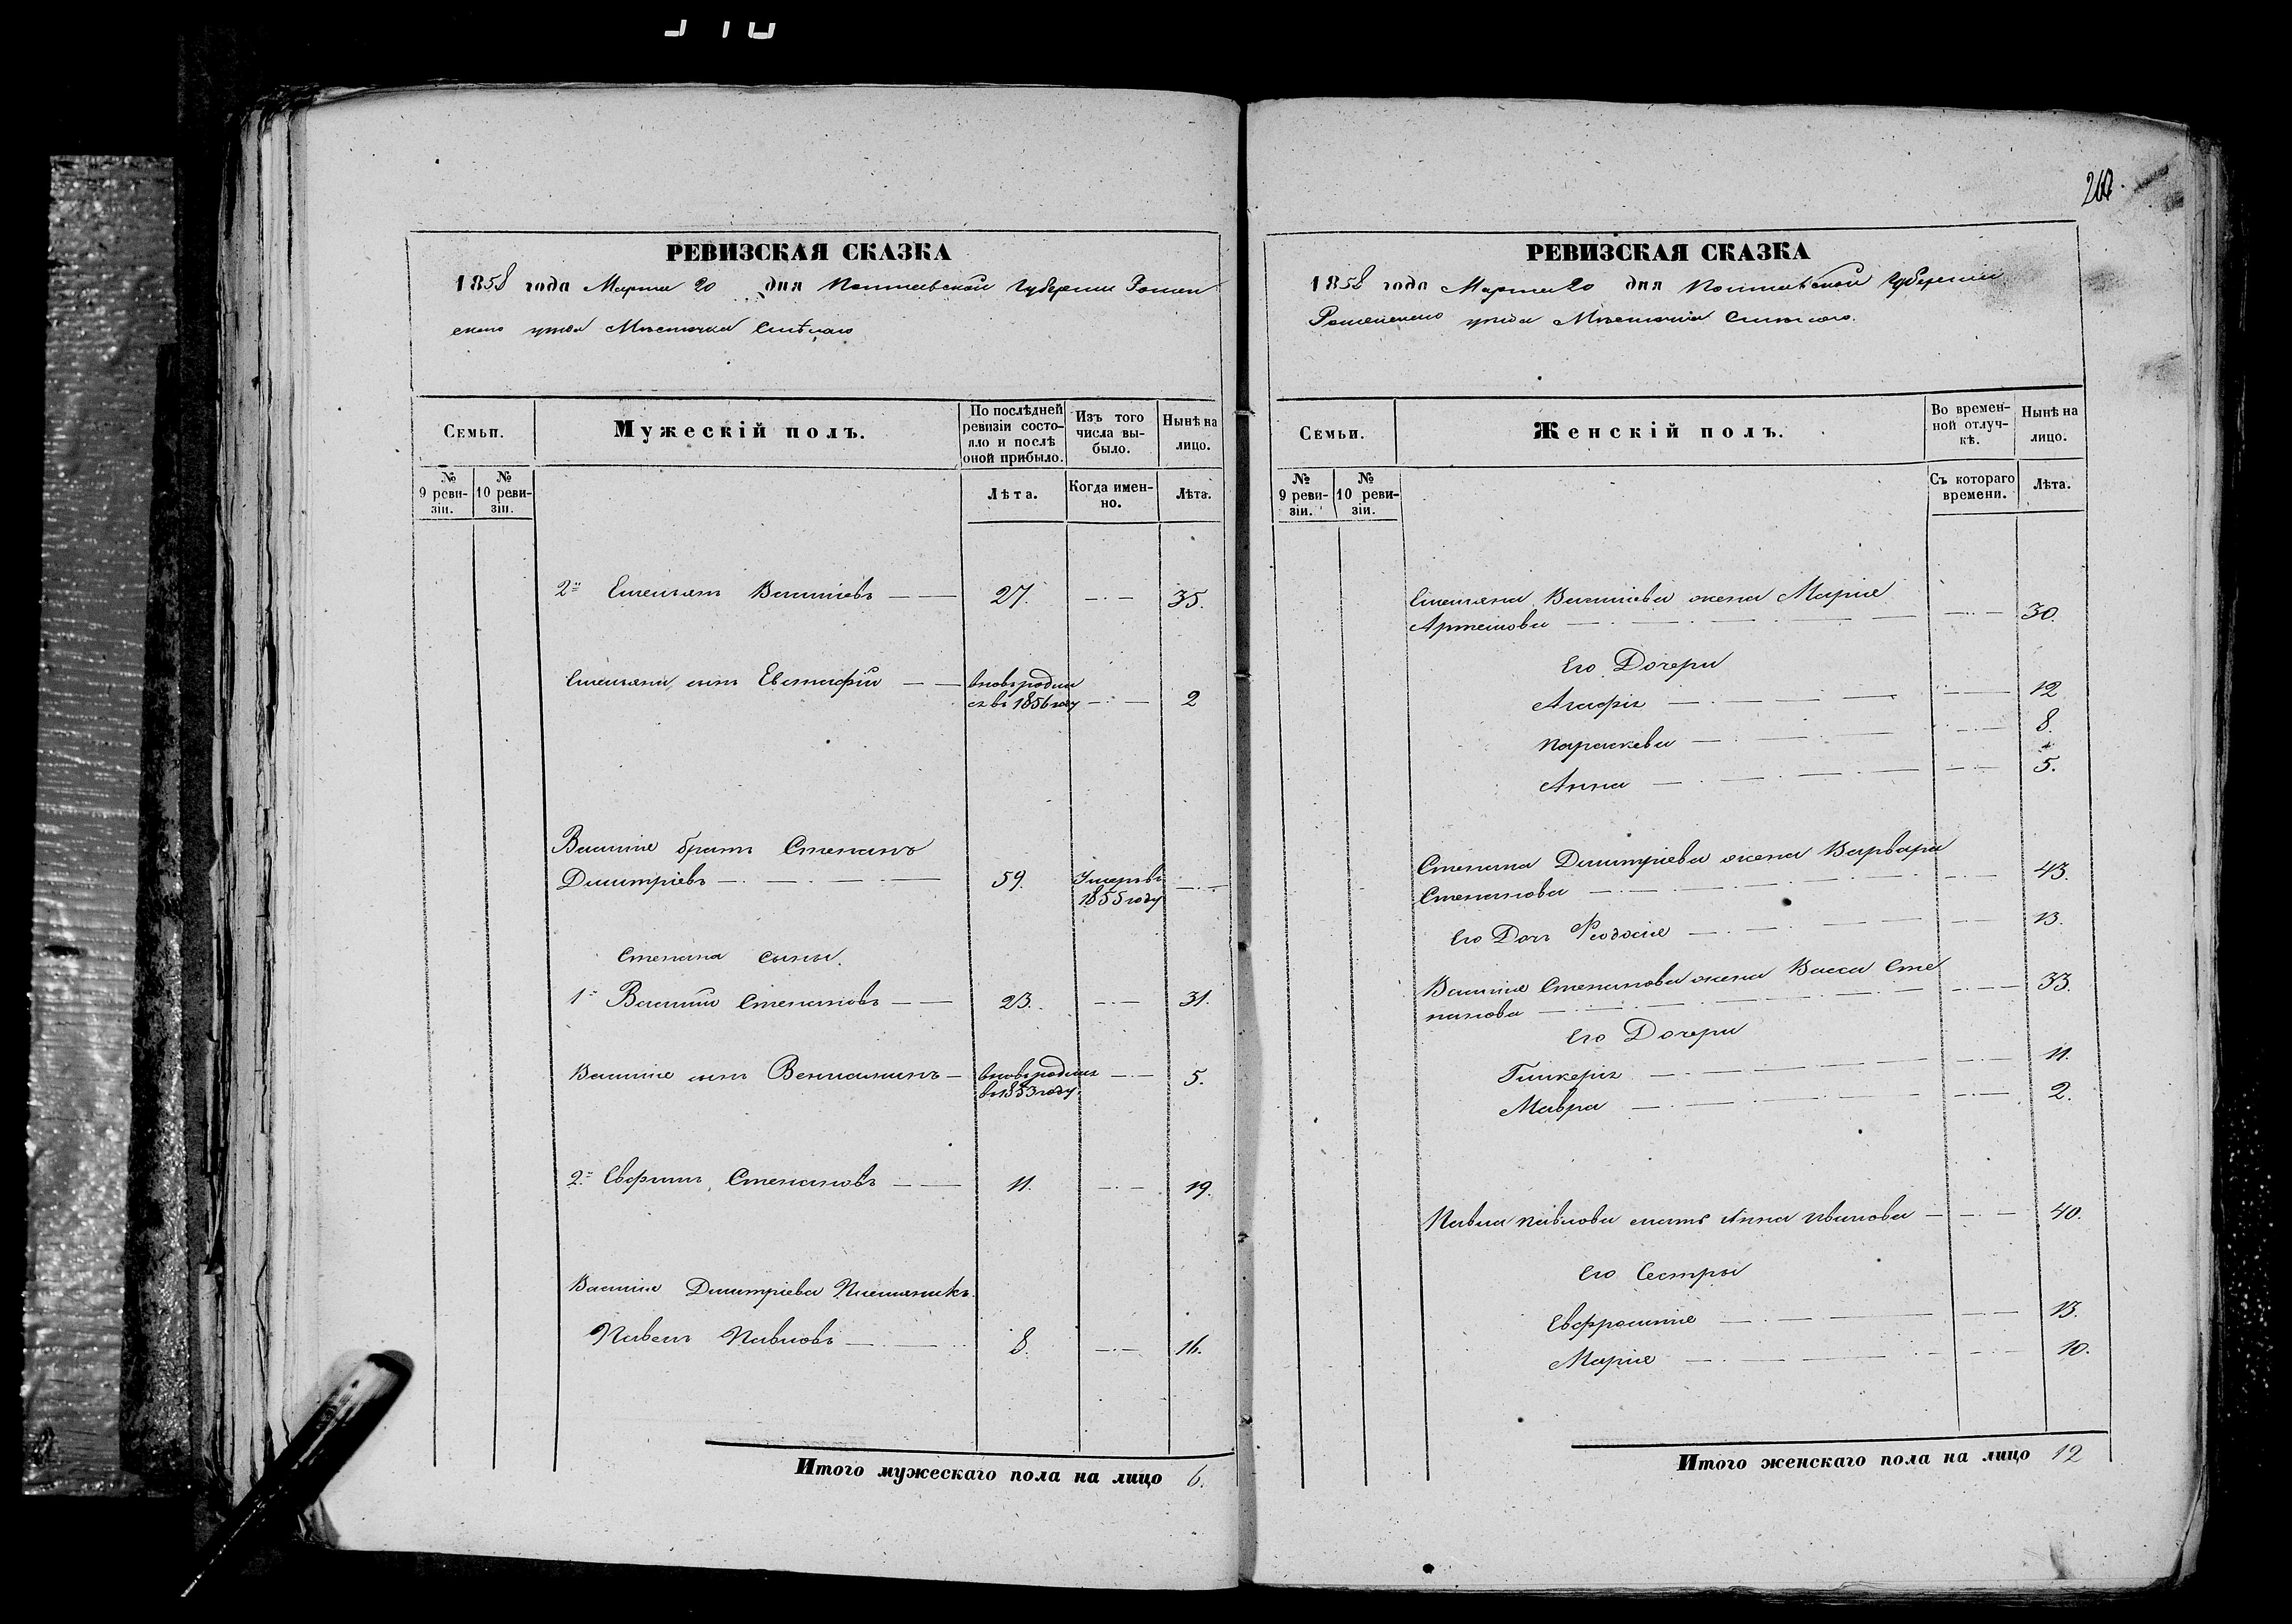 260
РЕВИЗСКАЯ СКАЗКА
1858 года Марта 20 дня Полтавской Губернии Ромен
скаго уѣзда Мѣстечка Смѣлаго
Семьи.
Мужескій полъ.
По послѣдней ревизіи состояло и послѣ оной прибыло.
Изъ того числа выбыло.
Нынѣ на лицо.
№ 9 ревизіи.
№ 10 ревизіи.
Лѣта.
Когда именно.
Лѣта.
2й Емельянъ Василіевъ 27. 35.
Емельяна сынъ Евстафій вновьродил
ся въ 1856 году 2
Василія братъ Степанъ
Димитріевъ 59. Умеръ въ
1855 году
Степана сыны.
1й Василій Степановъ 23. 31.
Василія сынъ Веніаминъ вновьродился 5.
в 1853 году.
2й Евфимъ Степановъ 11. 19.
Василія Димитріева Племяникъ
Павелъ Павловъ 8. 16.
Итого мужескаго пола на лицо 6.
РЕВИЗСКАЯ СКАЗКА
1858 года Марта 20 дня Полтавской Губернии
Роменскаго уѣзда Мѣстечка Смѣлаго.
Семьи.
Женскій полъ.
Во временной отлучкѣ.
Нынѣ на лицо.
№ 9 ревизіи.
№ 10 ревизіи.
Съ котораго времени.
Лѣта.
Емельяна Василіева жена Марія
Артемова 30.
Его Дочери
Агафія 12
Параскева 8.
Анна 5.
Степана Димитріева жена Варвара
Степанова 43.
Его Дочь Феодосія 13.
Василія Степанова жена Васса Сте
панова 33.
Его Дочери
Гликерія 11.
Мавра 2.
Павла Павлова мать Анна Иванова 40.
Его Сестры
Евфросинія 13.
Марія 10.
Итого женскаго пола на лицо 12